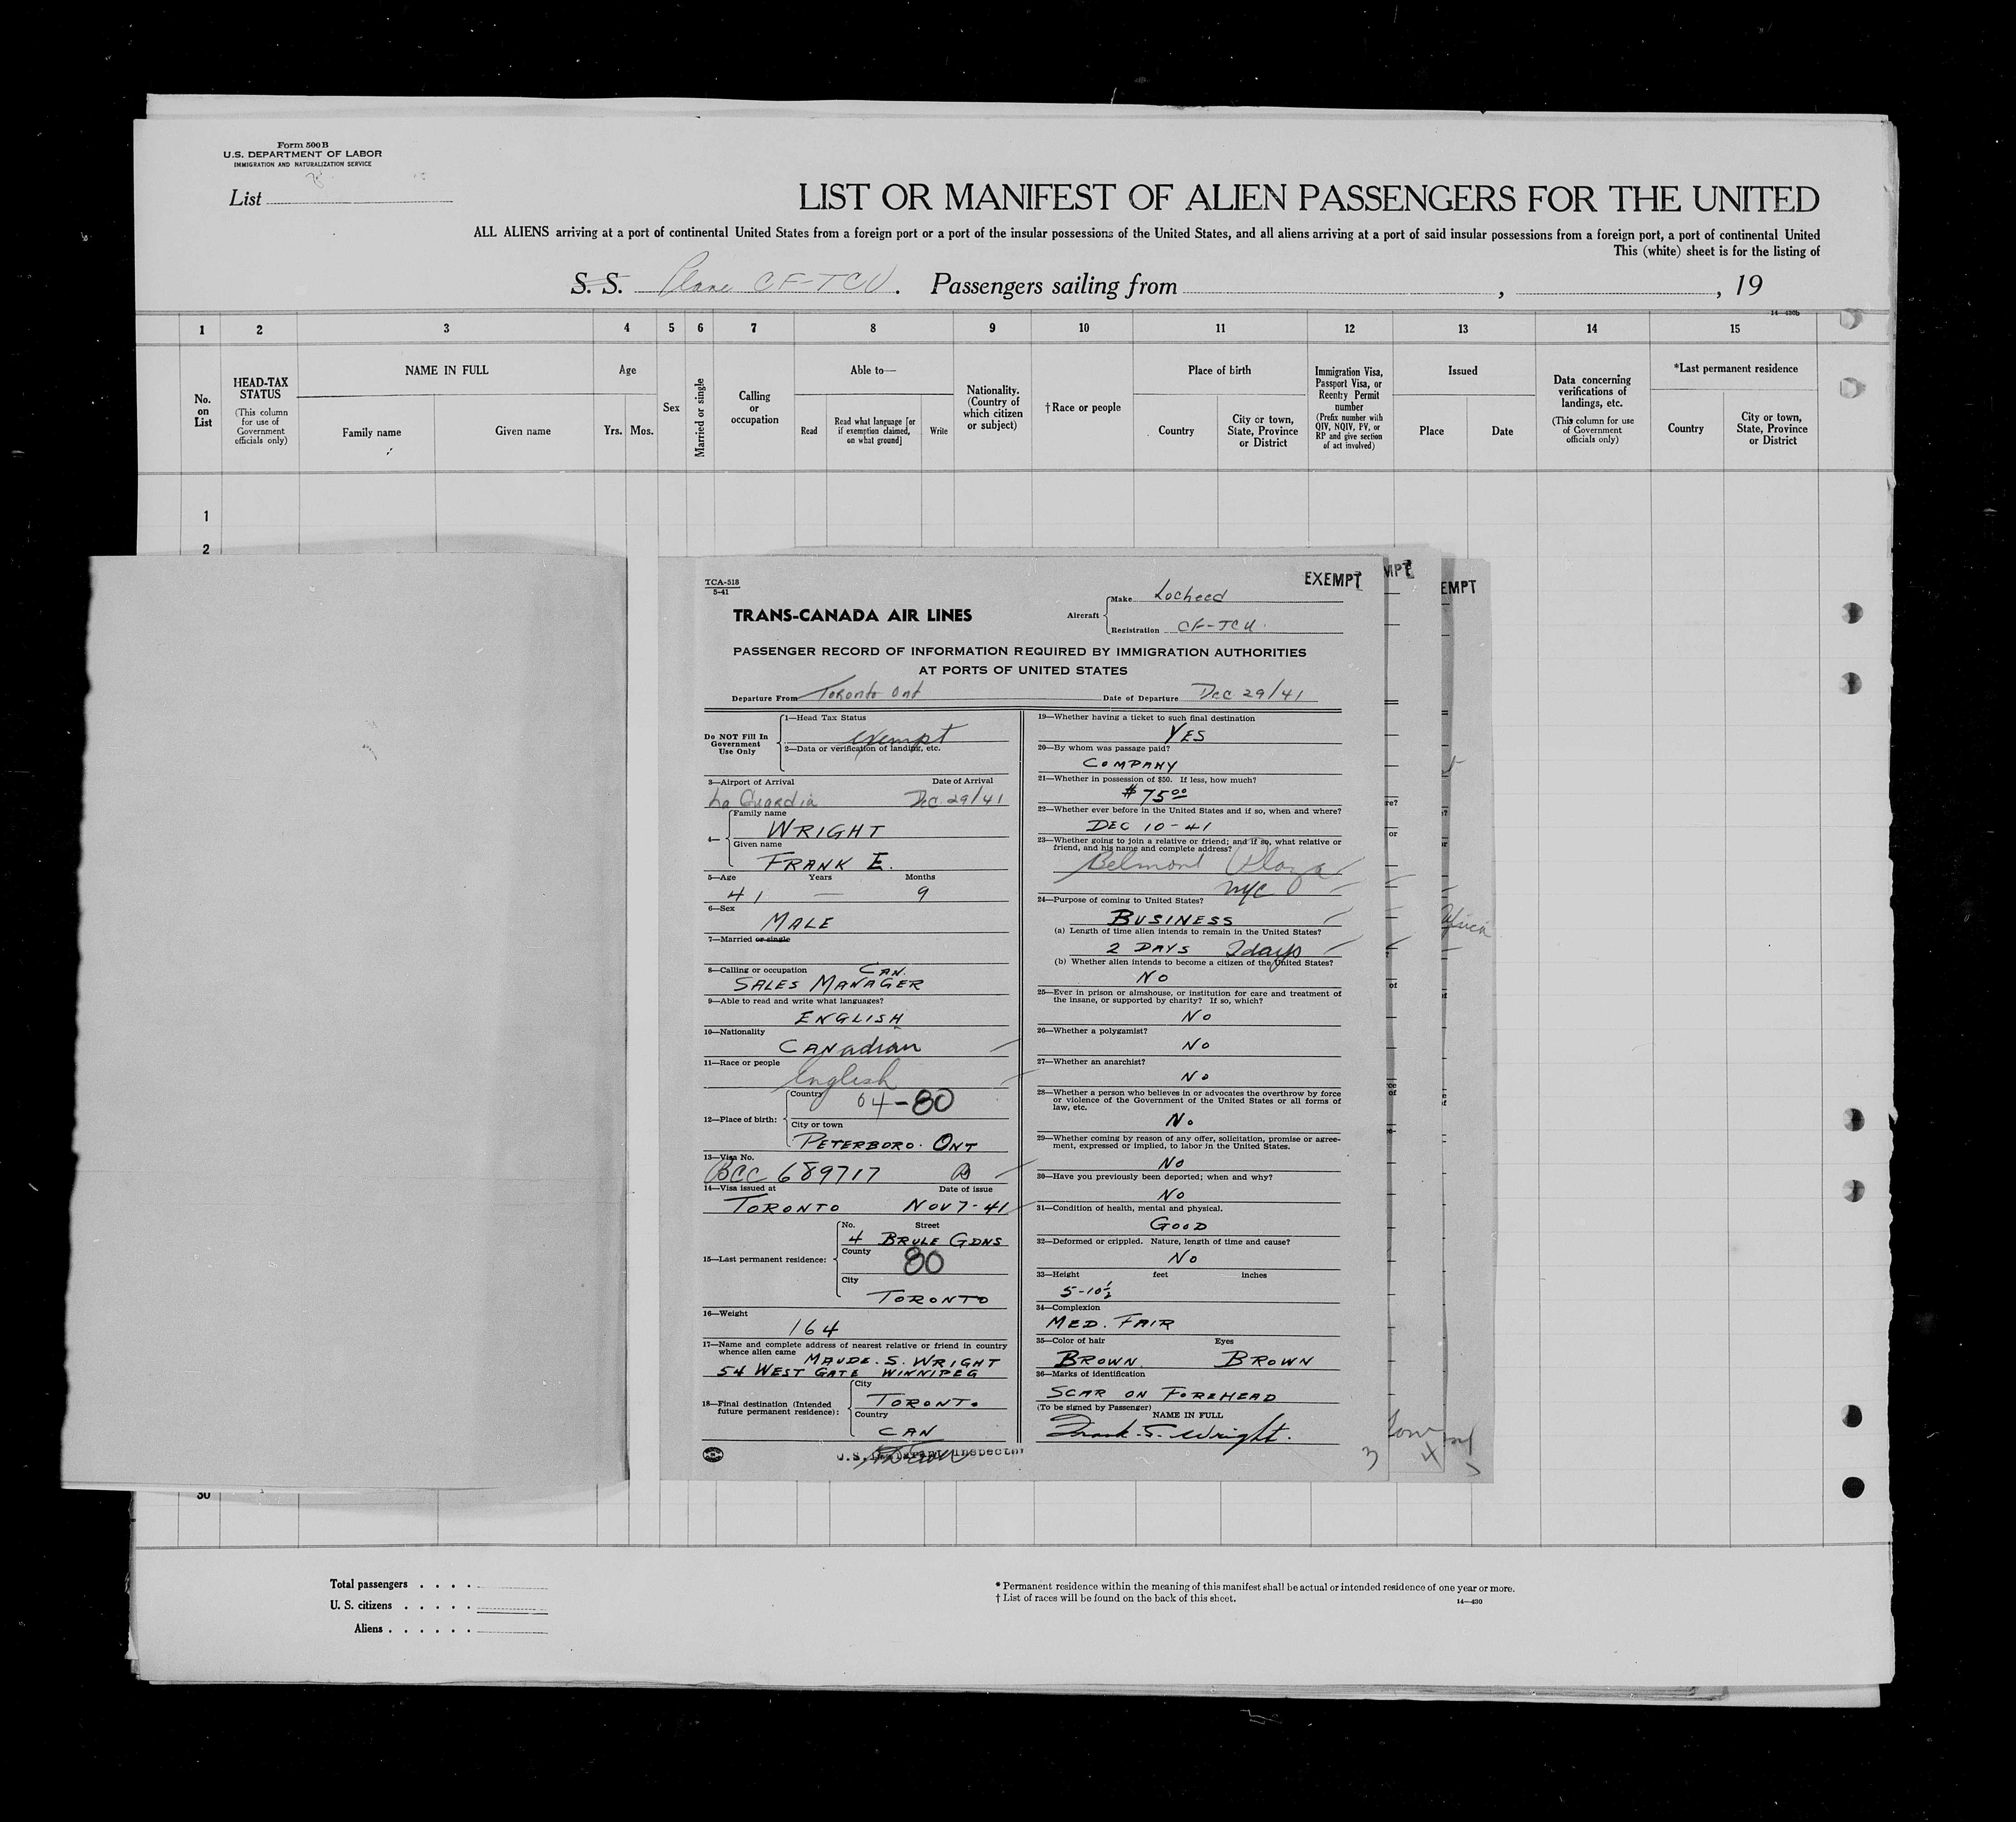 Form 500 B
U.S. DEPARTMENT OF LABOR
IMMIGRATION AND NATURALIZATION SERVICE
List
LIST OR MANIFEST OF ALIEN PASSENGERS FOR THE UNITED
ALL ALIENS arriving at a port of continental United States from a foreign port or a port of the insular possessions of the United States, and all aliens arriving at a port of said insular possessions from a foreign port, a port of continental United
This (white) sheet is for the listing of
S. S. Plane CF-TCU. Passengers sailing from , , 19
14—430b
1 2 3 4 5 6 7 8 9 10 11 12 13 14 15
No. on List
HEAD-TAX STATUS
(This column for use of Government officials only)
NAME IN FULL
Family name Given name
Age
Yrs. Mos.
Sex
Married or single
Calling or occupation
Able to—
Read
Read what language [or if exemption claimed, on what ground]
Write
Nationality. (Country of which citizen or subject)
†Race or people
Place of birth
Country
City or town, State, Province or District
Immigration Visa, Passport Visa, or Reentry Permit number
(Prefix number with QIV, NQIV, PV, or RP and give section of act involved)
Issued
Place Date
Data concerning verifications of landings, etc.
(This column for use of Government officials only)
*Last permanent residence
Country
City or town, State, Province or District
1
2
TCA-518
5-41
EXEMPT
MPT
EMPT
TRANS-CANADA AIR LINES
Aircraft
Make Locheed
Registration CF-TCU.
PASSENGER RECORD OF INFORMATION REQUIRED BY IMMIGRATION AUTHORITIES
AT PORTS OF UNITED STATES
Departure From Toronto Ont Date of Departure Dec 29/41
Do NOT Fill In Government Use Only
1—Head Tax Status
exempt
2—Data or verification of landing, etc.
3—Airport of Arrival Date of Arrival
La Guardia Dec. 29/41
4—
Family name
WRIGHT
Given name
FRANK E.
5—Age Years Months
41 — 9
6—Sex
MALE
7—Married or single
8—Calling or occupation CAN.
SALES MANAGER
9—Able to read and write what languages?
ENGLISH
10—Nationality
CANadian
11—Race or people
English
12—Place of birth:
Country
04-80
City or town
PETERBORO. ONT
13—Visa No.
BCC 689717
14—Visa issued at Date of issue
TORONTO NOV 7-41
15—Last permanent residence:
No. Street
4 BRULE GDNS
County
80
City
TORONTO
16—Weight
164
17—Name and complete address of nearest relative or friend in country
whence alien came MAUDE. S. WRIGHT
54 WEST GATE WINNIPEG
18—Final destination (Intended future permanent residence):
City
TORONTO
Country
CAN
U.S. Immigrant Inspector
19—Whether having a ticket to such final destination
YES
20—By whom was passage paid?
COMPANY
21—Whether in possession of $50. If less, how much?
$75 00
22—Whether ever before in the United States and if so, when and where?
DEC 10-41
23—Whether going to join a relative or friend; and if so, what relative or
friend, and his name and complete address?
Belmont Plaza
NYC
24—Purpose of coming to United States?
BUSINESS
(a) Length of time alien intends to remain in the United States?
2 DAYS 2days
(b) Whether alien intends to become a citizen of the United States?
NO
25—Ever in prison or almshouse, or institution for care and treatment of
the insane, or supported by charity? If so, which?
NO
26—Whether a polygamist?
NO
27—Whether an anarchist?
NO
28—Whether a person who believes in or advocates the overthrow by force
or violence of the Government of the United States or all forms of
law, etc.
NO
29—Whether coming by reason of any offer, solicitation, promise or agree-
ment, expressed or implied, to labor in the United States.
NO
30—Have you previously been deported; when and why?
NO
31—Condition of health, mental and physical.
GOOD
32—Deformed or crippled. Nature, length of time and cause?
NO
33—Height feet inches
5-10½
34—Complexion
MED. FAIR
35—Color of hair Eyes
BROWN. BROWN
36—Marks of identification
SCAR ON FOREHEAD
(To be signed by Passenger)
NAME IN FULL
Frank. S. Wright.
3
30
Total passengers . . . .
U. S. citizens . . . . .
Aliens . . . . . .
* Permanent residence within the meaning of this manifest shall be actual or intended residence of one year or more.
† List of races will be found on the back of this sheet.
14—430